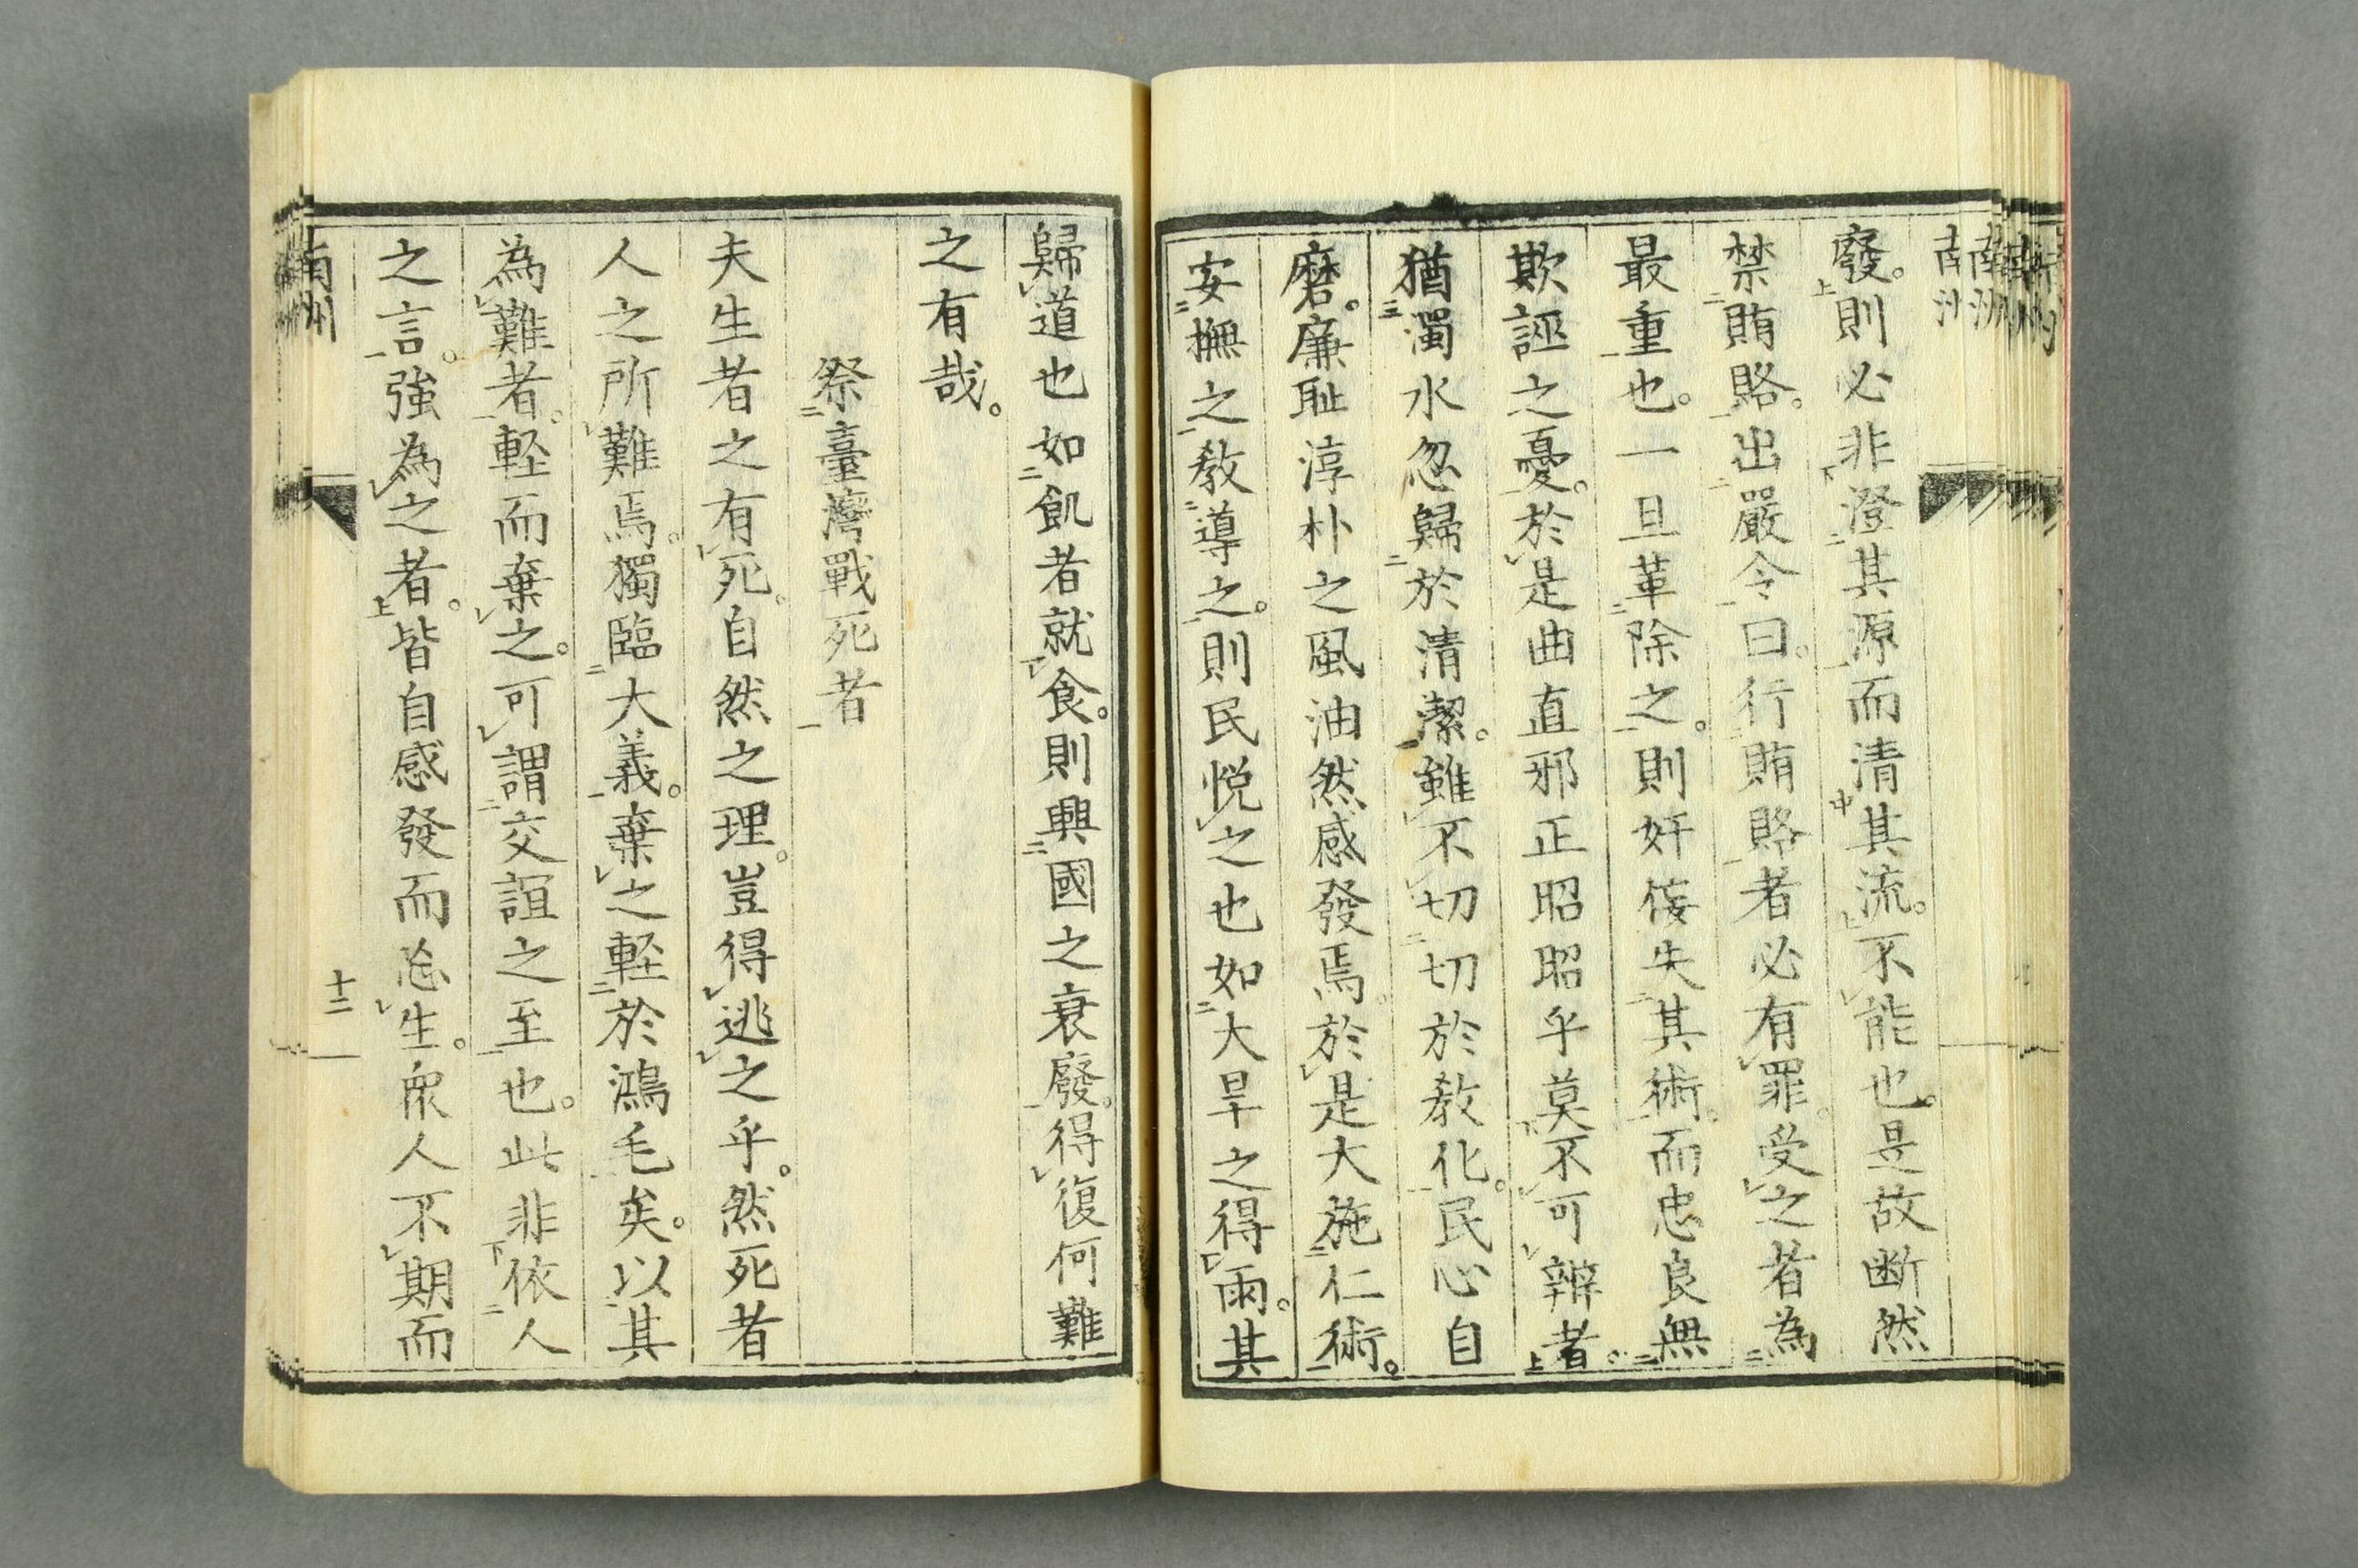 廢。則必非澄其源而清其流。不能也。是故断然
禁賄賂。出嚴令曰。行賄賂者必有罪。受之者為
最重也。一旦革除之。則奸侫失其術。而忠良無
欺誣之憂。於是曲直邪正昭昭乎莫不可辨者。
猶濁水忽歸於清潔。雖不切切於教化。民心自
磨。廉耻淳朴之風油然感發焉。於是大施仁術。
安撫之教導之。則民悦之也如大旱之得雨。其
歸道也如飢者就食。則興國之衰廢。得復何難
之有哉。
祭臺灣戰死者
夫生者之有死。自然之理。豈得逃之乎。然死者
人之所難焉。獨臨大義。棄之軽於鴻毛矣。以其
為難者。軽而棄之。可謂交誼之至也。此非依人
之言。強為之者。皆自感發而忘生。衆人不期而
南州
十二